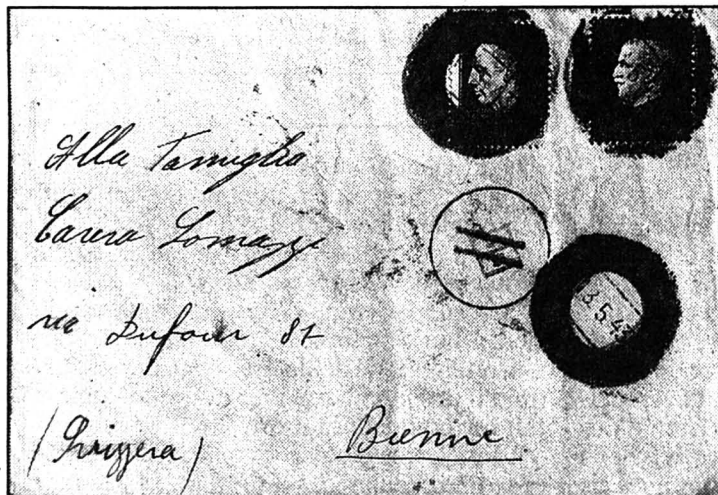 Alla Famiglia
Carera Lomazzi
via Dufour 87
(Svizzera)
Bienne
3.5.4